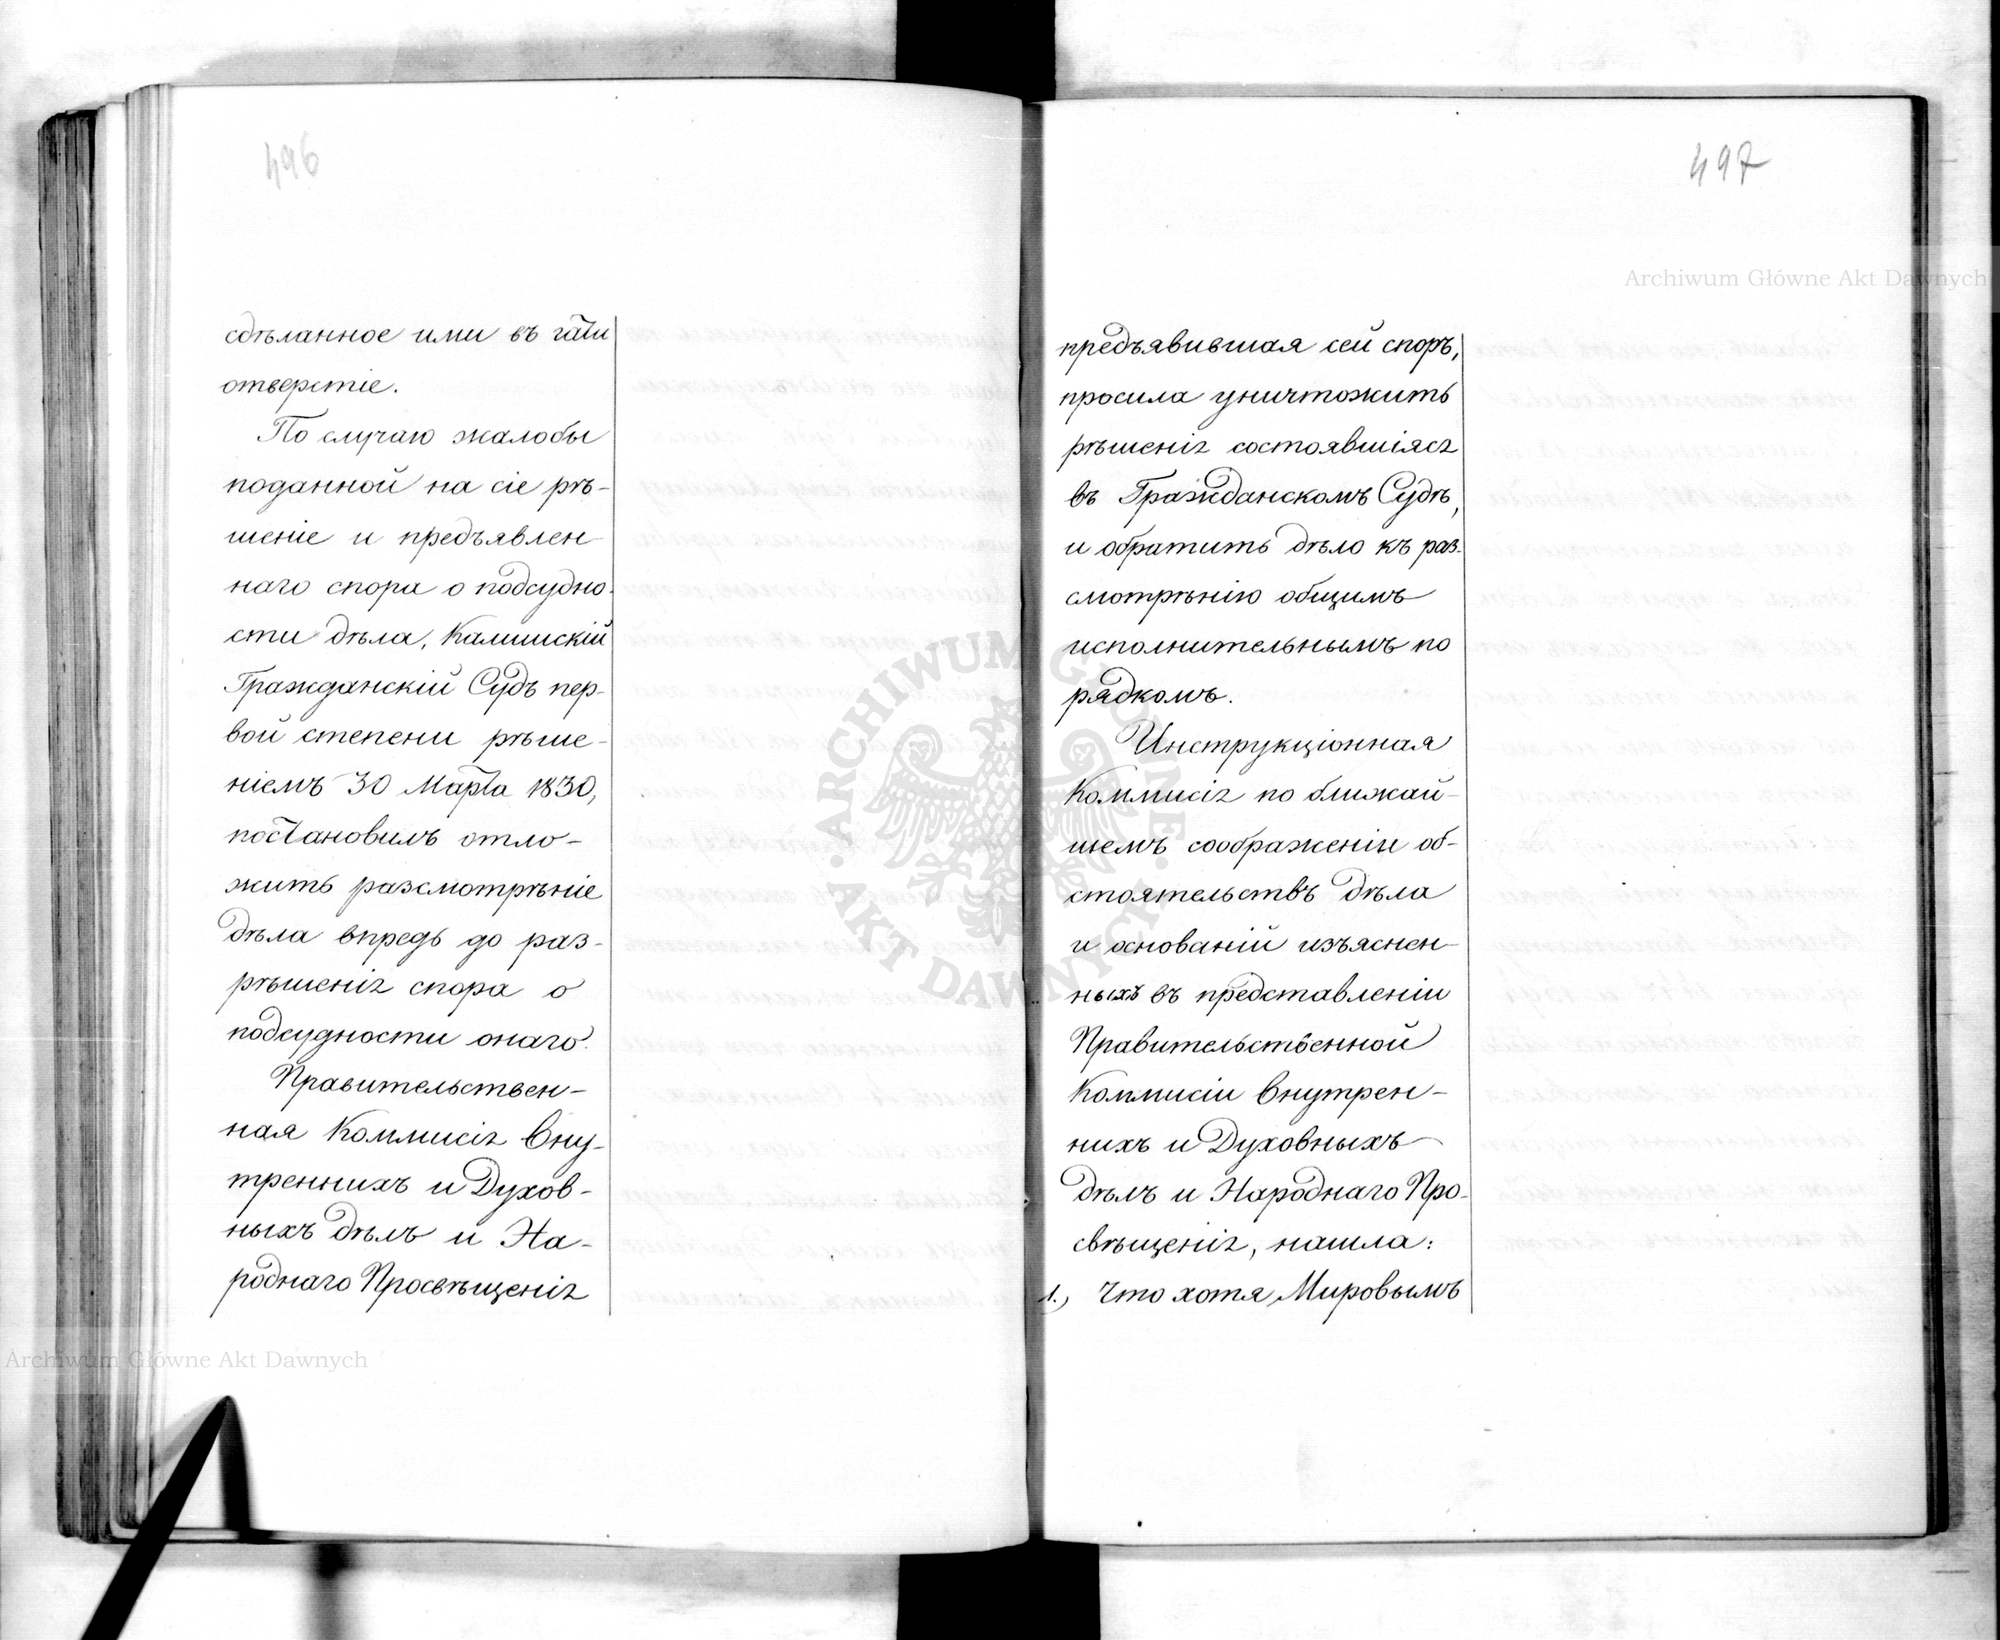 496
сдѣланное ими въ гати
отверстіе.
По случаю жалобы
поданной на сіе рѣ-
шеніе и предъявлен-
наго спора о подсудно-
сти дѣла, Калишскій
Гражданскій Судъ пер-
вой степени рѣше-
ніемъ 30 Марта 1830,
постановилъ отло-
жить разсмотрѣніе
дѣла впредь до раз-
рѣшенія спора о
подсудности онаго.
Правительствен-
ная Коммисія Вну-
треннихъ и Духов-
ныхъ дѣлъ и На-
роднаго Просвѣщенія
497
предъявившая сей споръ,
просила уничтожить
рѣшенія состоявшіяся
въ Гражданскомъ Судѣ,
и обратить дѣло къ раз-
смотрѣнію общимъ
исполнительнымъ по
рядкомъ.
Инструкціонная
Коммисія по ближай-
шемъ соображеніи об-
стоятельствъ дѣла
и основаній изъяснен-
ныхъ въ представленіи
Правительственной
Коммисіи Внутрен-
нихъ и Духовныхъ
дѣлъ и Народнаго Про-
свѣщенія, нашла:
1.) Что хотя Мировымъ
Archiwum Główne Akt Dawnych
Archiwum Główne Akt Dawnych
ARCHIWUM GŁÓWNE AKT DAWNYCH